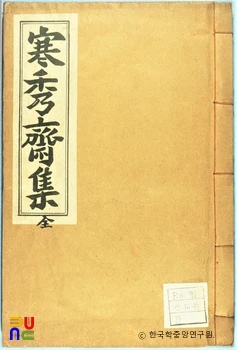 寒秀齋集
全
© 한국학중앙연구원